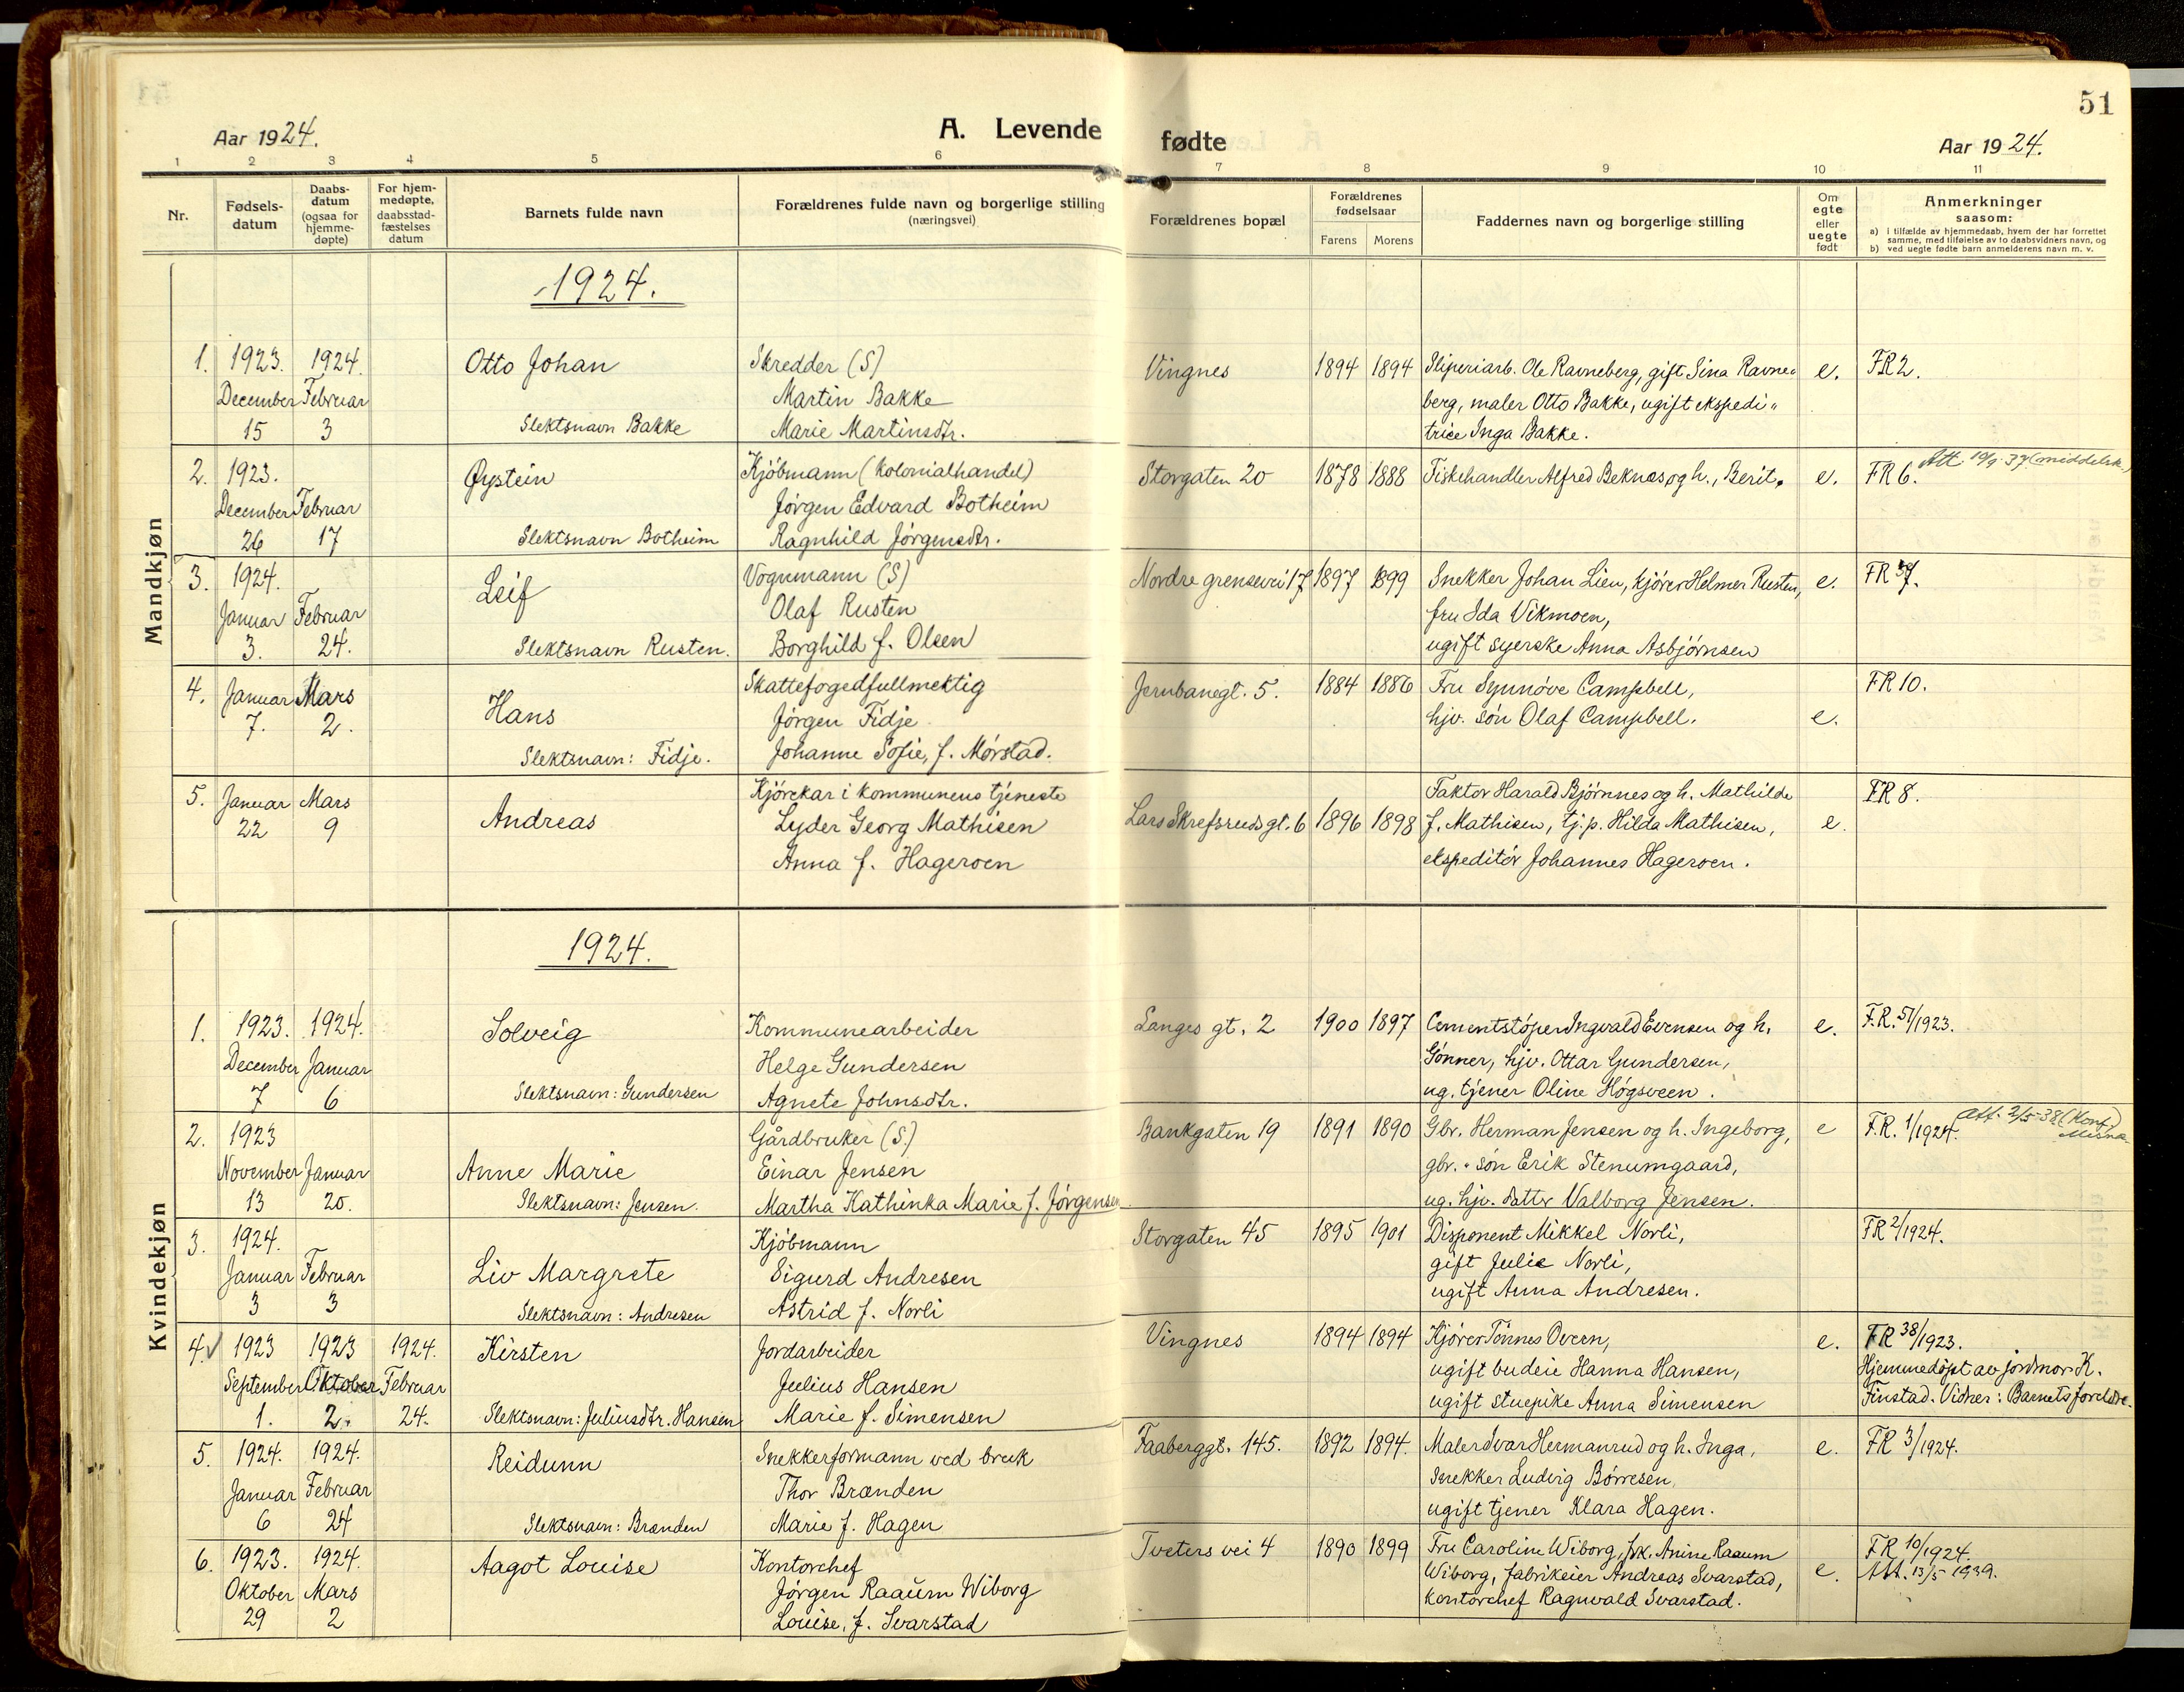 51
Aar 1924.
A. Levende fødte
Aar 1924.
1 2 3 4 5 6 7 8 9 10 11
Nr.
Fødsels-
datum
Daabs-
datum
(ogsaa for
hjemme-
døpte)
For hjem-
medøpte,
daabsstad-
fæstelses
datum
Barnets fulde navn
Forældrenes fulde navn og borgerlige stilling
(næringsvei)
Forældrenes bopæl
Forældrenes
fødselsaar
Farens Morens
Faddernes navn og borgerlige stilling
Om
egte
eller
uegte
født
Anmerkninger
saasom:
a) i tilfælde av hjemmedaab, hvem der har forrettet
samme, med tilføielse av to daabsvidners navn, og
b) ved uegte fødte barn anmelderens navn m. v.
Mandkjøn
1924.
1. 1923. 1924. Otto Johan Skredder (S) Vingnes 1894 1894 Sliperiarb. Ole Ravneberg, gift Sina Ravne= e. FR 2.
December Februar Martin Bakke berg, maler Otto Bakke, ugift ekspedi"
15 3 Slektsnavn Bakke Marie Martinsdtr. trice Inga Bakke.
2. 1923. Øystein Kjöbmann (kolonialhandel) Storgaten 20 1878 1888 Fiskehandler Alfred Beknes og h., Berit. e. FR 6. Att. 10/9-37 (middelsk.)
December Februar Jörgen Edvard Botheim
26 17 Slektsnavn Botheim Ragnhild Jörgensdtr.
3. 1924. Leif Vognmann (S) Nordre grensevei 17 1897 1899 Snekker Johan Lien, kjörer Helmer Rusten, e. FR 7.
Januar Februar Olaf Rusten fru Ida Vikmoen,
3. 24. Slektsnavn Rusten. Borghild f. Olsen ugift syerske Anna Asbjörnsen
4. Januar Mars Hans Skattefogedfullmektig Jernbanegt. 5. 1884 1886 Fru Synnöve Campbell, FR 10.
7. 2. Jörgen Fidje hjv. sön Olaf Campbell. e.
Slektsnavn: Fidje. Johanne Sofie, f. Mörstad.
5. Januar Mars Andreas Kjörekar i kommunens tjeneste Faktor Harald Björnnes og h. Mathilde FR 8.
22 9 Lyder Georg Mathisen Lars Skrefsruds gt. 6 1896 1898 f. Mathisen, tj.p. Hilda Mathisen, e.
Anna f. Hageroen ekspeditör Johannes Hageroen.
Kvindekjøn
1924.
1. 1923. 1924. Solveig Kommunearbeider Langes gt. 2 1900 1897 Cementstöper Ingvald Evensen og h. e. F.R. 51/1923.
December Januar Helge Gundersen Gönner, hjv. Ottar Gundersen,
7 6 Slektsnavn: Gundersen Agnete Johnsdtr. ug. tjener Oline Högsveen.
2. 1923 Anne Marie Gårdbruker (S.) Bankgaten 19 1891 1890 Gbr. Herman Jensen og h. Ingeborg, e F.R. 1/1924. Att. 2/5-38 (Konf)
November Januar Einar Jensen gbr. sön Erik Stenumgaard,
13 20. Slektsnavn: Jensen. Martha Kathinka Marie f. Jörgensen ug. hjv. datter Valborg Jensen.
3. 1924. Liv Margrete Kjöbmann Storgaten 45 1895 1901 Disponent Mikkel Norli, FR 2/1924.
Januar Februar Sigurd Andresen gift Julie Norli,
3 3 Slektsnavn: Andresen Astrid f. Norli ugift Anna Andresen.
4. 1923 1923 1924. Kirsten Jordarbeider Vingnes 1894 1894 Kjörer Tönnes Overn, e. FR 38/1923.
September Oktober Februar Julius Hansen ugift budeie Hanna Hansen, Hjemmedöpt av jordmor K.
1. 2. 24. Slektsnavn: Juliusdtr. Hansen Marie f. Simensen ugift stuepike Anna Simensen Finstad. Vidner: Barnets foreldre.
5. 1924. 1924. Reidunn Snekkerformann ved bruk Faaberggt. 145. 1892 1894. Maler Ivar Hermanrud og h. Inga, e. FR 3/1924.
Januar Februar Thor Brænden Snekker Ludvig Börresen,
6 24 Slektsnavn: Brænden Marie f. Hagen ugift tjener Klara Hagen.
6. 1923. 1924. Aagot Louise Kontorchef Tveters vei 4 1890 1899 Fru Caroline Wiborg, frk. Anine Raaum FR 10/1924.
Oktober Mars Jörgen Raaum Wiborg Wiborg, fabrikeier Andreas Svarstad, e. Att. 13/5 1939.
29 2 Louise, f. Svarstad kontorchef Ragnvald Svarstad.